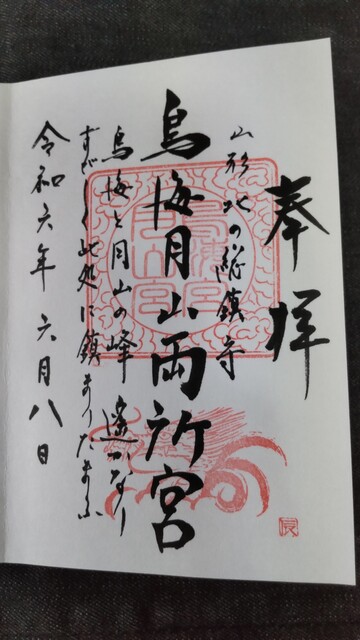 奉拝
山形北の総鎮守
鳥海月山両所宮
鳥海と月山の峰 遙かなり
すゞしく此処に鎮まりたまふ
令和六年 六月八日